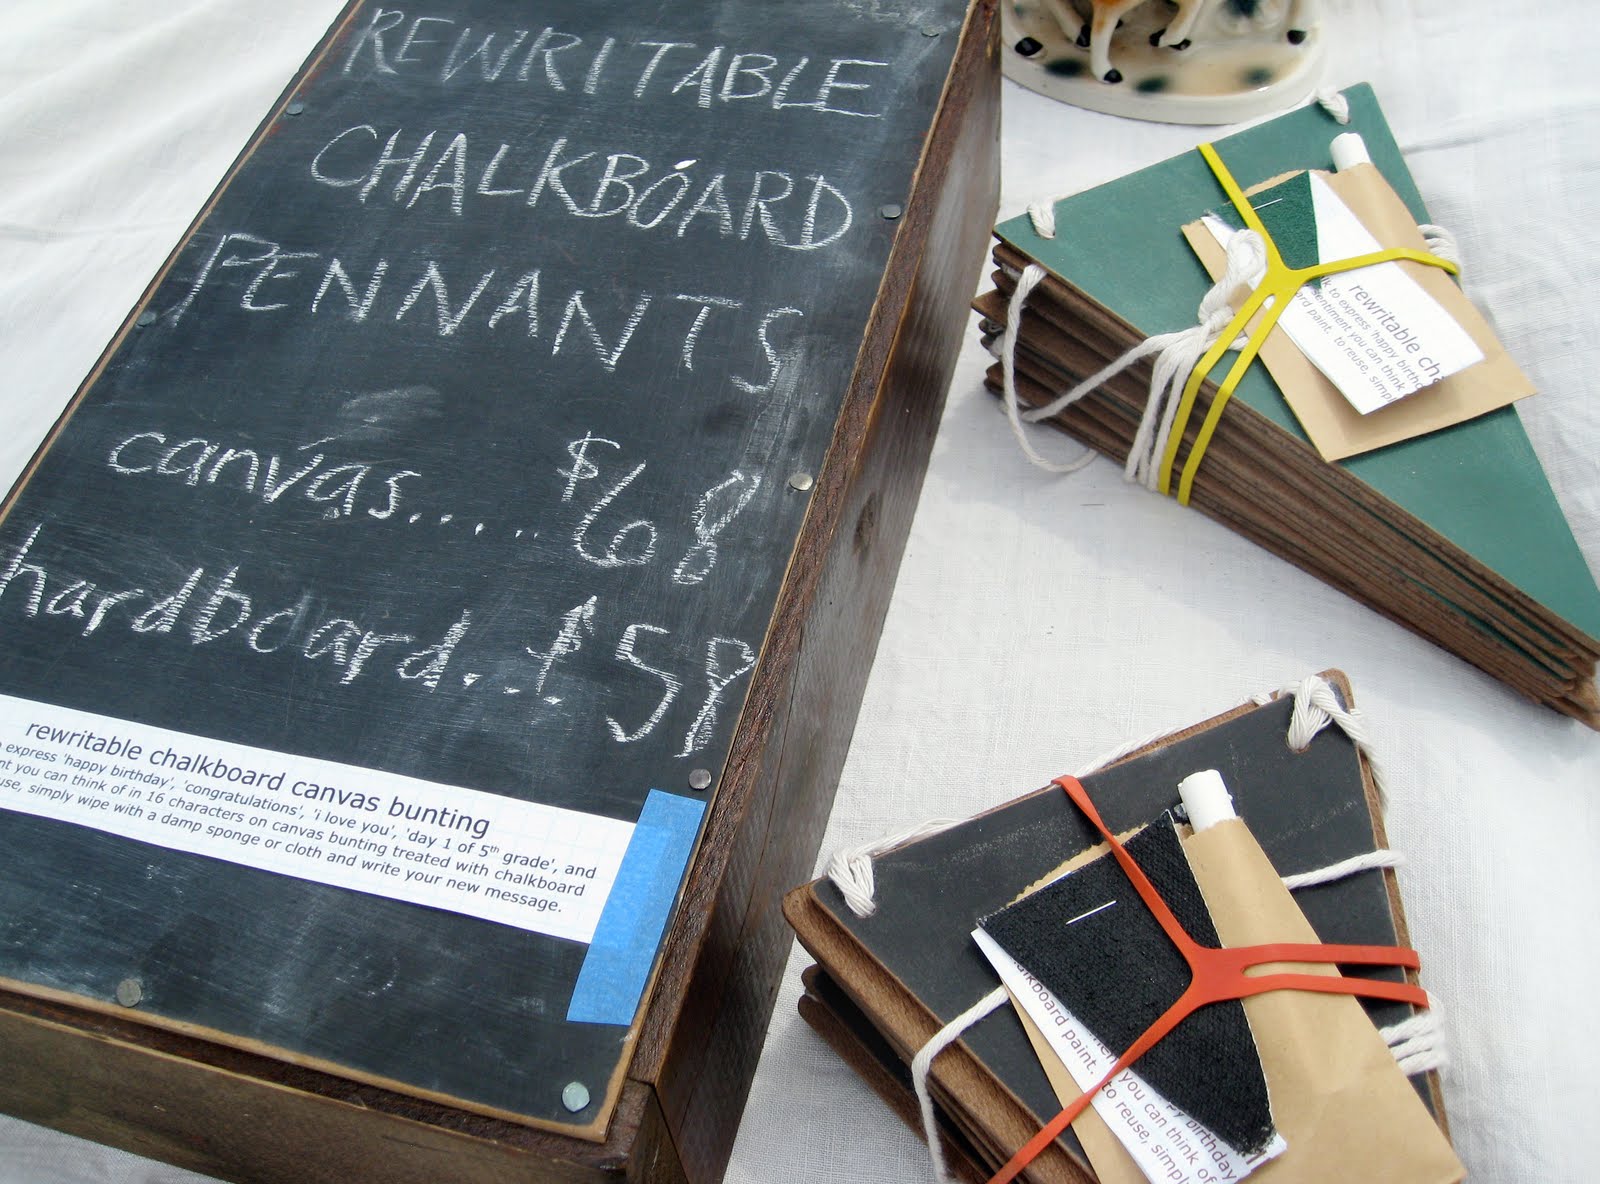 REWRITABLE
CHALKBOARD
PENNANTS
canvas...... $68
hardboard... $58
rewritable chalkboard canvas bunting
express 'happy birthday', 'congratulations', 'i love you', 'day 1 of 5th grade', and
you can think of in 16 characters on canvas bunting treated with chalkboard
simply wipe with a damp sponge or cloth and write your new message.
rewritable
to express 'happy
sentiment you can think
paint.
to reuse,
chalkboard paint.
you can think of
to reuse,